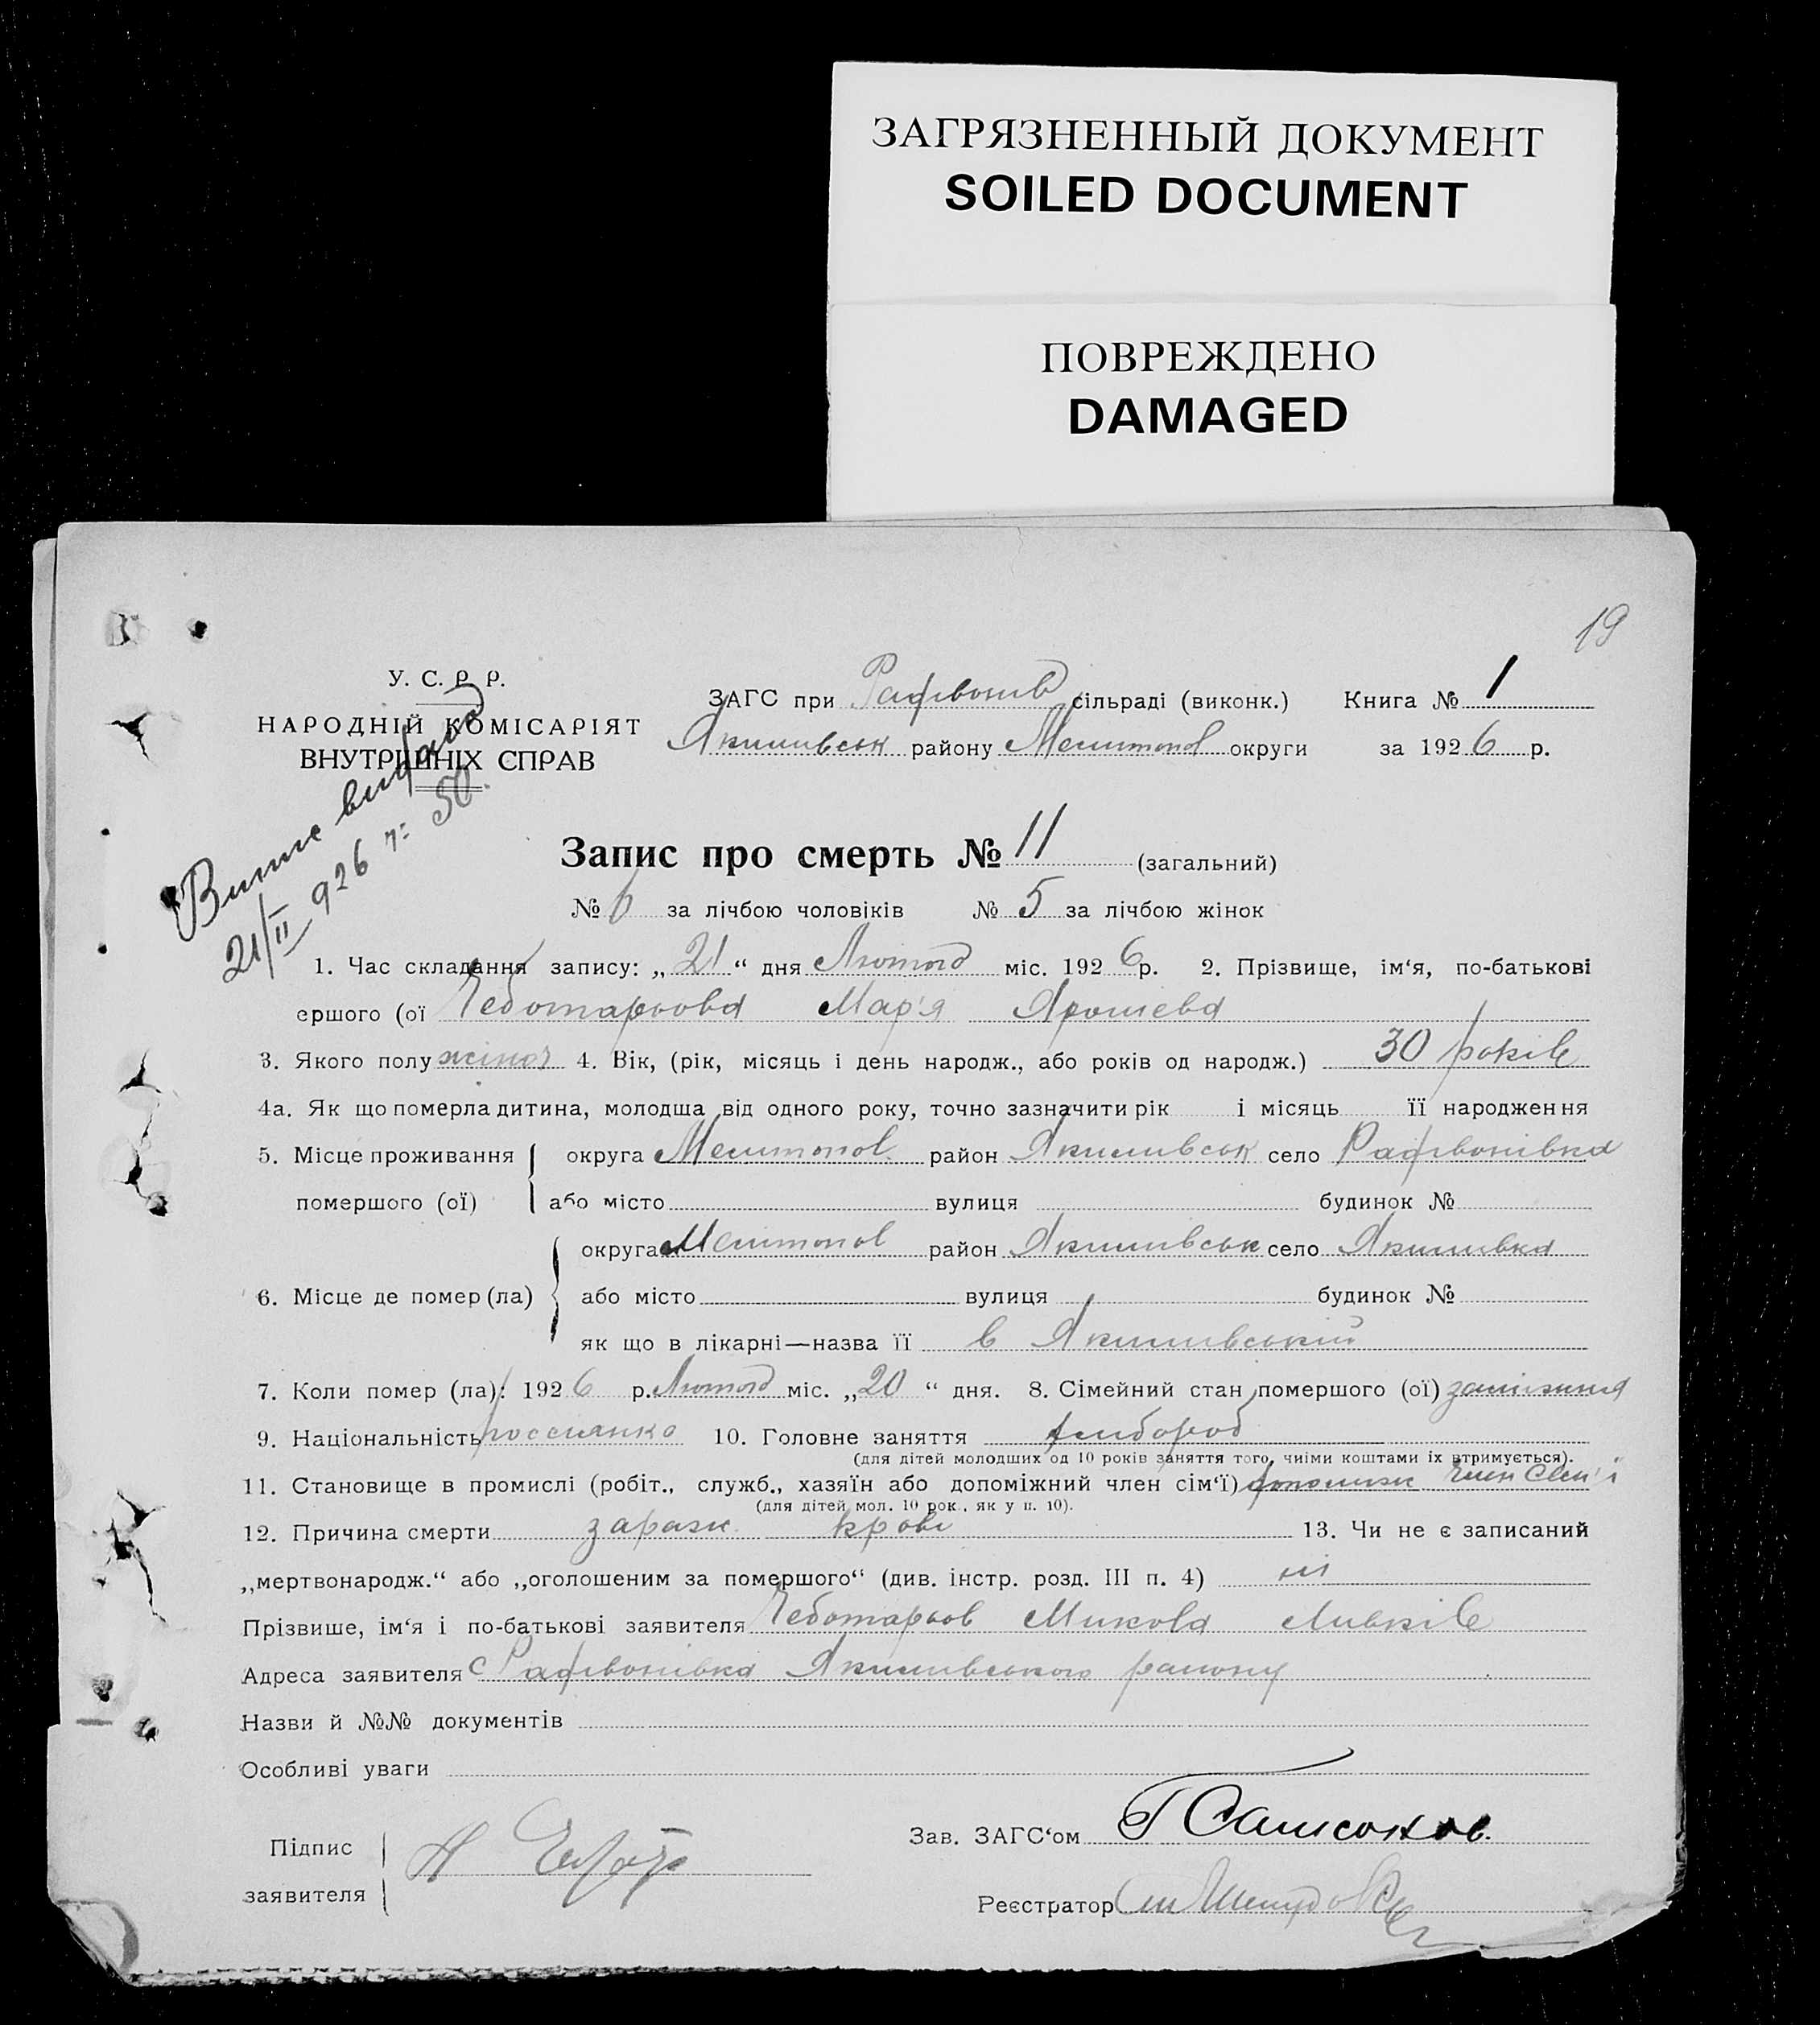 ЗАГРЯЗНЕННЫЙ ДОКУМЕНТ
SOILED DOCUMENT
ПОВРЕЖДЕНО
DAMAGED
19
У. С. Р. Р.
НАРОДНІЙ КОМІСАРІЯТ
ВНУТРІШНІХ СПРАВ
21/II 926 50
ЗАГС при сільраді (виконк.) Книга № 1
Якимивськ району Мелитопол округи за 1926 р.
Запис про смерть № 11 (загальний)
№ 6 за лічбою чоловіків № 5 за лічбою жінок
1. Час складання запису: „21“ дня Лютого міс. 1926 р. 2. Прізвище, ім‘я, по-батькові
ершого (ої Чеботарьова Мар'я
3. Якого полу жіноч 4. Вік, (рік, місяць і день народж., або років од народж.) 30 років
4а. Як що померла дитина, молодша від одного року, точно зазначити рік і місяць її народження
5. Місце проживання округа Мелитопол район Якимивськ село
помершого (ої) або місто вулиця будинок №
округа Мелитопол район Якимивськ село Якимивка
6. Місце де помер (ла) або місто вулиця будинок №
як що в лікарні—назва її в Якимивській
7. Коли помер (ла): 1926 р. Лютого міс. „20“ дня. 8. Сімейний стан помершого (ої) заміжния
9. Національність россиянка 10. Головне заняття хлибороб
(для дітей молодших од 10 років заняття того, чиїми коштами їх втримується).
11. Становище в промислі (робіт., служб., хазяїн або допоміжний член сім‘ї) допомижн член сем'ї
(для дітей мол. 10 рок., як у п. 10).
12. Причина смерти зараж крові 13. Чи не є записаний
„мертвонародж.“ або „оголошеним за помершого“ (див. інстр. розд. III п. 4) ні
Прізвише, ім‘я і по-батькові заявителя Чеботарьов Микола
Адреса заявителя с Якимивського району
Назви й №№ документів
Особливі уваги
Підпис
заявителя
Зав. ЗАГС‘ом
Реєстратор